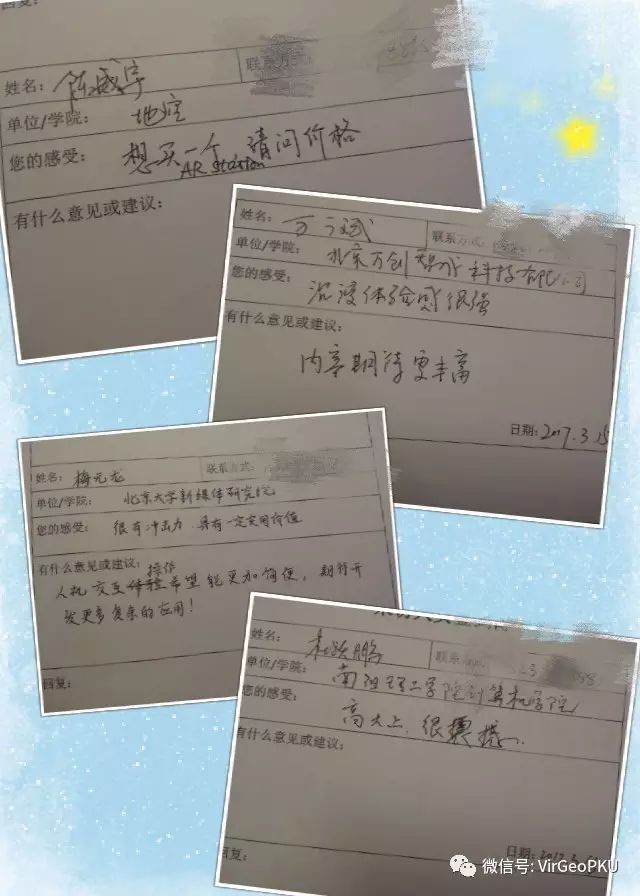 回复:
姓名: 陈威宇
联系方式:
单位/学院: 地空
您的感受: 想买一个 AR Station 请问价格
有什么意见或建议:
姓名: 万
联系方式:
单位/学院: 北京万创 科技有限公司
您的感受: 沉浸体验感很强
有什么意见或建议:
内容期待更丰富
日期: 2017.3.15
姓名: 梅元龙
联系方式:
单位/学院: 北京大学新媒体研究院
您的感受: 很有冲击力,具有一定实用价值
有什么意见或建议: 操作
人机交互 希望能更加简便,期待开
发更多复杂的应用!
回复:
姓名: 杜跃鹏
联系方式:
单位/学院: 南阳理工学院计算机学院
您的感受: 高大上,很震撼
有什么意见或建议:
日期: 2017.3
回复:
微信号: VirGeoPKU